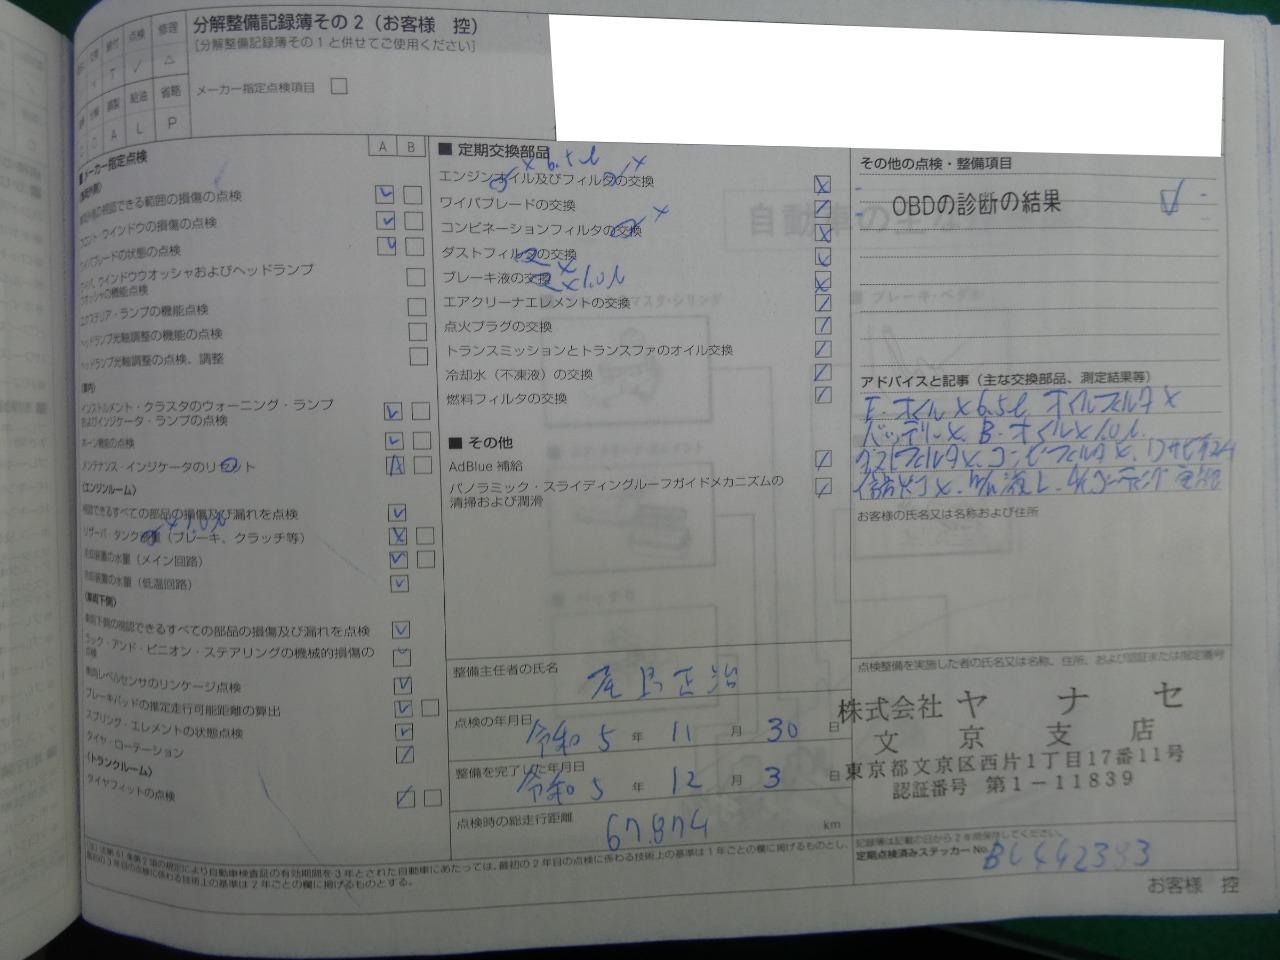 分解整備記録簿その2(お客様 控)
[分解整備記録簿その1と併せてご使用ください]
点検 修理
T ✓ △
給油 省略
A L P
メーカー指定点検項目
■メーカー指定点検
A B
損傷の点検
ウインドウの損傷の点検
ワイパブレードの状態の点検
ウインドウウオッシャおよびヘッドランプ
ウオッシャの機能点検
エクステリア・ランプの機能点検
ヘッドランプ光軸調整の機能の点検
ヘッドランプ光軸調整の点検、調整
(車内)
インストルメント・クラスタのウォーニング・ランプ
およびインジケータ・ランプの点検
ホーン機能の点検
メンテナンス・インジケータのリセット
(エンジンルーム)
視認できるすべての部品の損傷及び漏れを点検
x1.0ℓ
リザーバ・タンク液量(ブレーキ、クラッチ等)
冷却装置の水量(メイン回路)
冷却装置の水量(低温回路)
(車両下側)
車両下側の視認できるすべての部品の損傷及び漏れを点検
ラック・アンド・ピニオン・ステアリングの機械的損傷の
点検
車両レベルセンサのリンケージ点検
ブレーキパッドの推定走行可能距離の算出
スプリング・エレメントの状態点検
タイヤ・ローテーション
(トランクルーム)
タイヤフィットの点検
■ 定期交換部品
エンジンオイル及びフィルタの交換
ワイパブレードの交換
コンビネーションフィルタの交換
ダストフィルタの交換
ブレーキ液の交換
x1.0ℓ
エアクリーナエレメントの交換
点火プラグの交換
トランスミッションとトランスファのオイル交換
冷却水(不凍液)の交換
燃料フィルタの交換
■ その他
AdBlue 補給
パノラミック・スライディングルーフガイドメカニズムの
清掃および潤滑
整備主任者の氏名
点検の年月日
令和 5 年 11 月 30 日
整備を完了した年月日
令和 5 年 12 月 3 日
点検時の総走行距離
67.874 km
その他の点検・整備項目
OBDの診断の結果
アドバイスと記事(主な交換部品、測定結果等)
E・オイル x 6.5ℓ オイルフィルタ x
バッテリー x. B・オイル x 1.0ℓ.
お客様の氏名又は名称および住所
点検整備を実施した者の氏名又は名称、住所、および認証または指定番号
株式会社 ヤナセ
文京支店
東京都文京区西片1丁目17番11号
認証番号 第1-11839
記録簿は記載の日から2年間保存してください。
定期点検済みステッカー No.
(注)法第61条第2項の規定により自動車検査証の有効期間を3年とされた自動車にあたっては、最初の2年目の点検に係わる技術上の基準は1年ごとの欄に掲げるものとし、
最初の3年目の点検に係わる技術上の基準は2年ごとの欄に掲げるものとする。
お客様 控